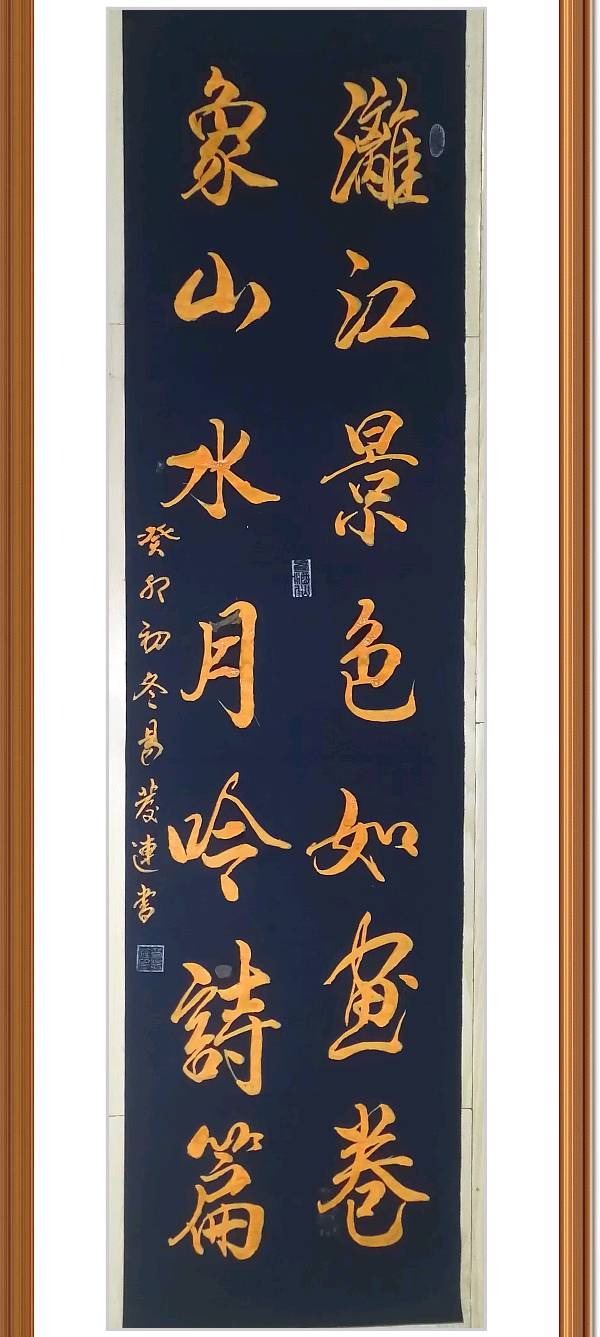 灕江景色如画卷
象山水月吟詩篇
癸卯初冬易蔆連書